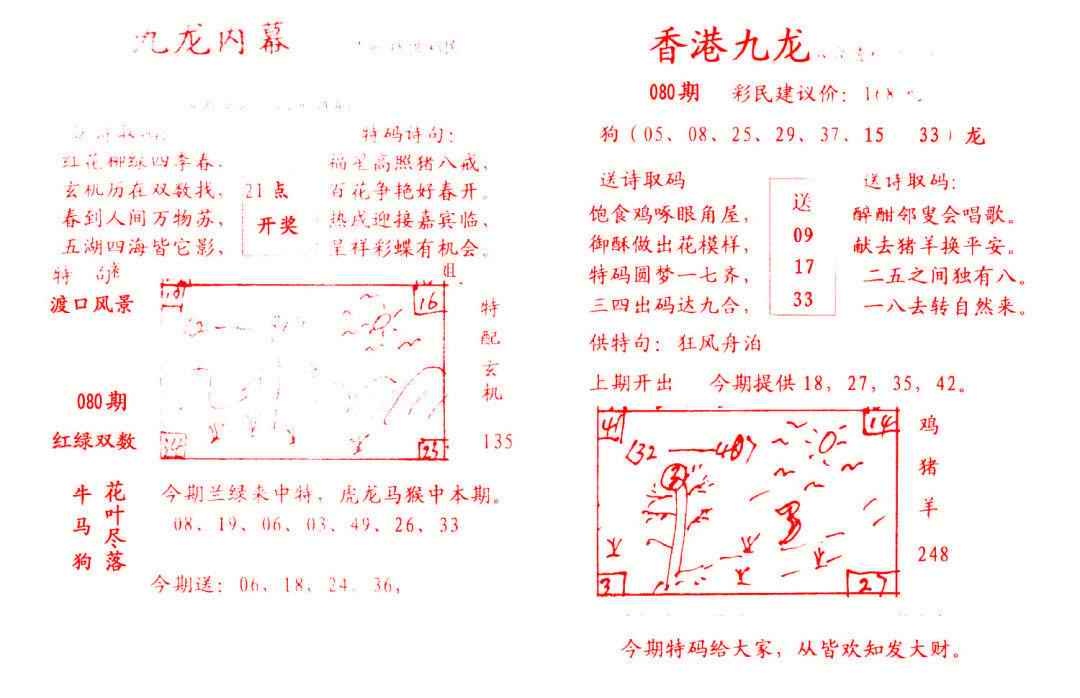 九龙内幕
特码诗句：
红花柳绿四季春，
玄机历在双数找，
春到人间万物苏，
五湖四海皆它影，
21点
开奖
福星高照猪八戒，
百花争艳好春开。
热戌迎接嘉宾临，
呈祥彩蝶有机会。
特
渡口风景
080期
红绿双数
16
23
特配玄机
135
牛马狗
花叶尽落
今期兰绿来中特，虎龙马猴中本期。
08、19、06、03、49、26、33
今期送：06，18，24，36，
香港九龙
080期 彩民建议价：
狗（05、08、25、29、37、15 33）龙
送诗取码
饱食鸡啄眼角屋，
御酥做出花模样，
特码圆梦一七齐，
三四出码达九合，
送
09
17
33
送诗取码：
醉酣邻叟会唱歌。
献去猪羊换平安。
二五之间独有八。
一八去转自然来。
供特句：狂风舟泊
上期开出 今期提供18，27，35，42。
41
14
132
3
27
鸡
猪
羊
248
今期特码给大家，从皆欢知发大财。